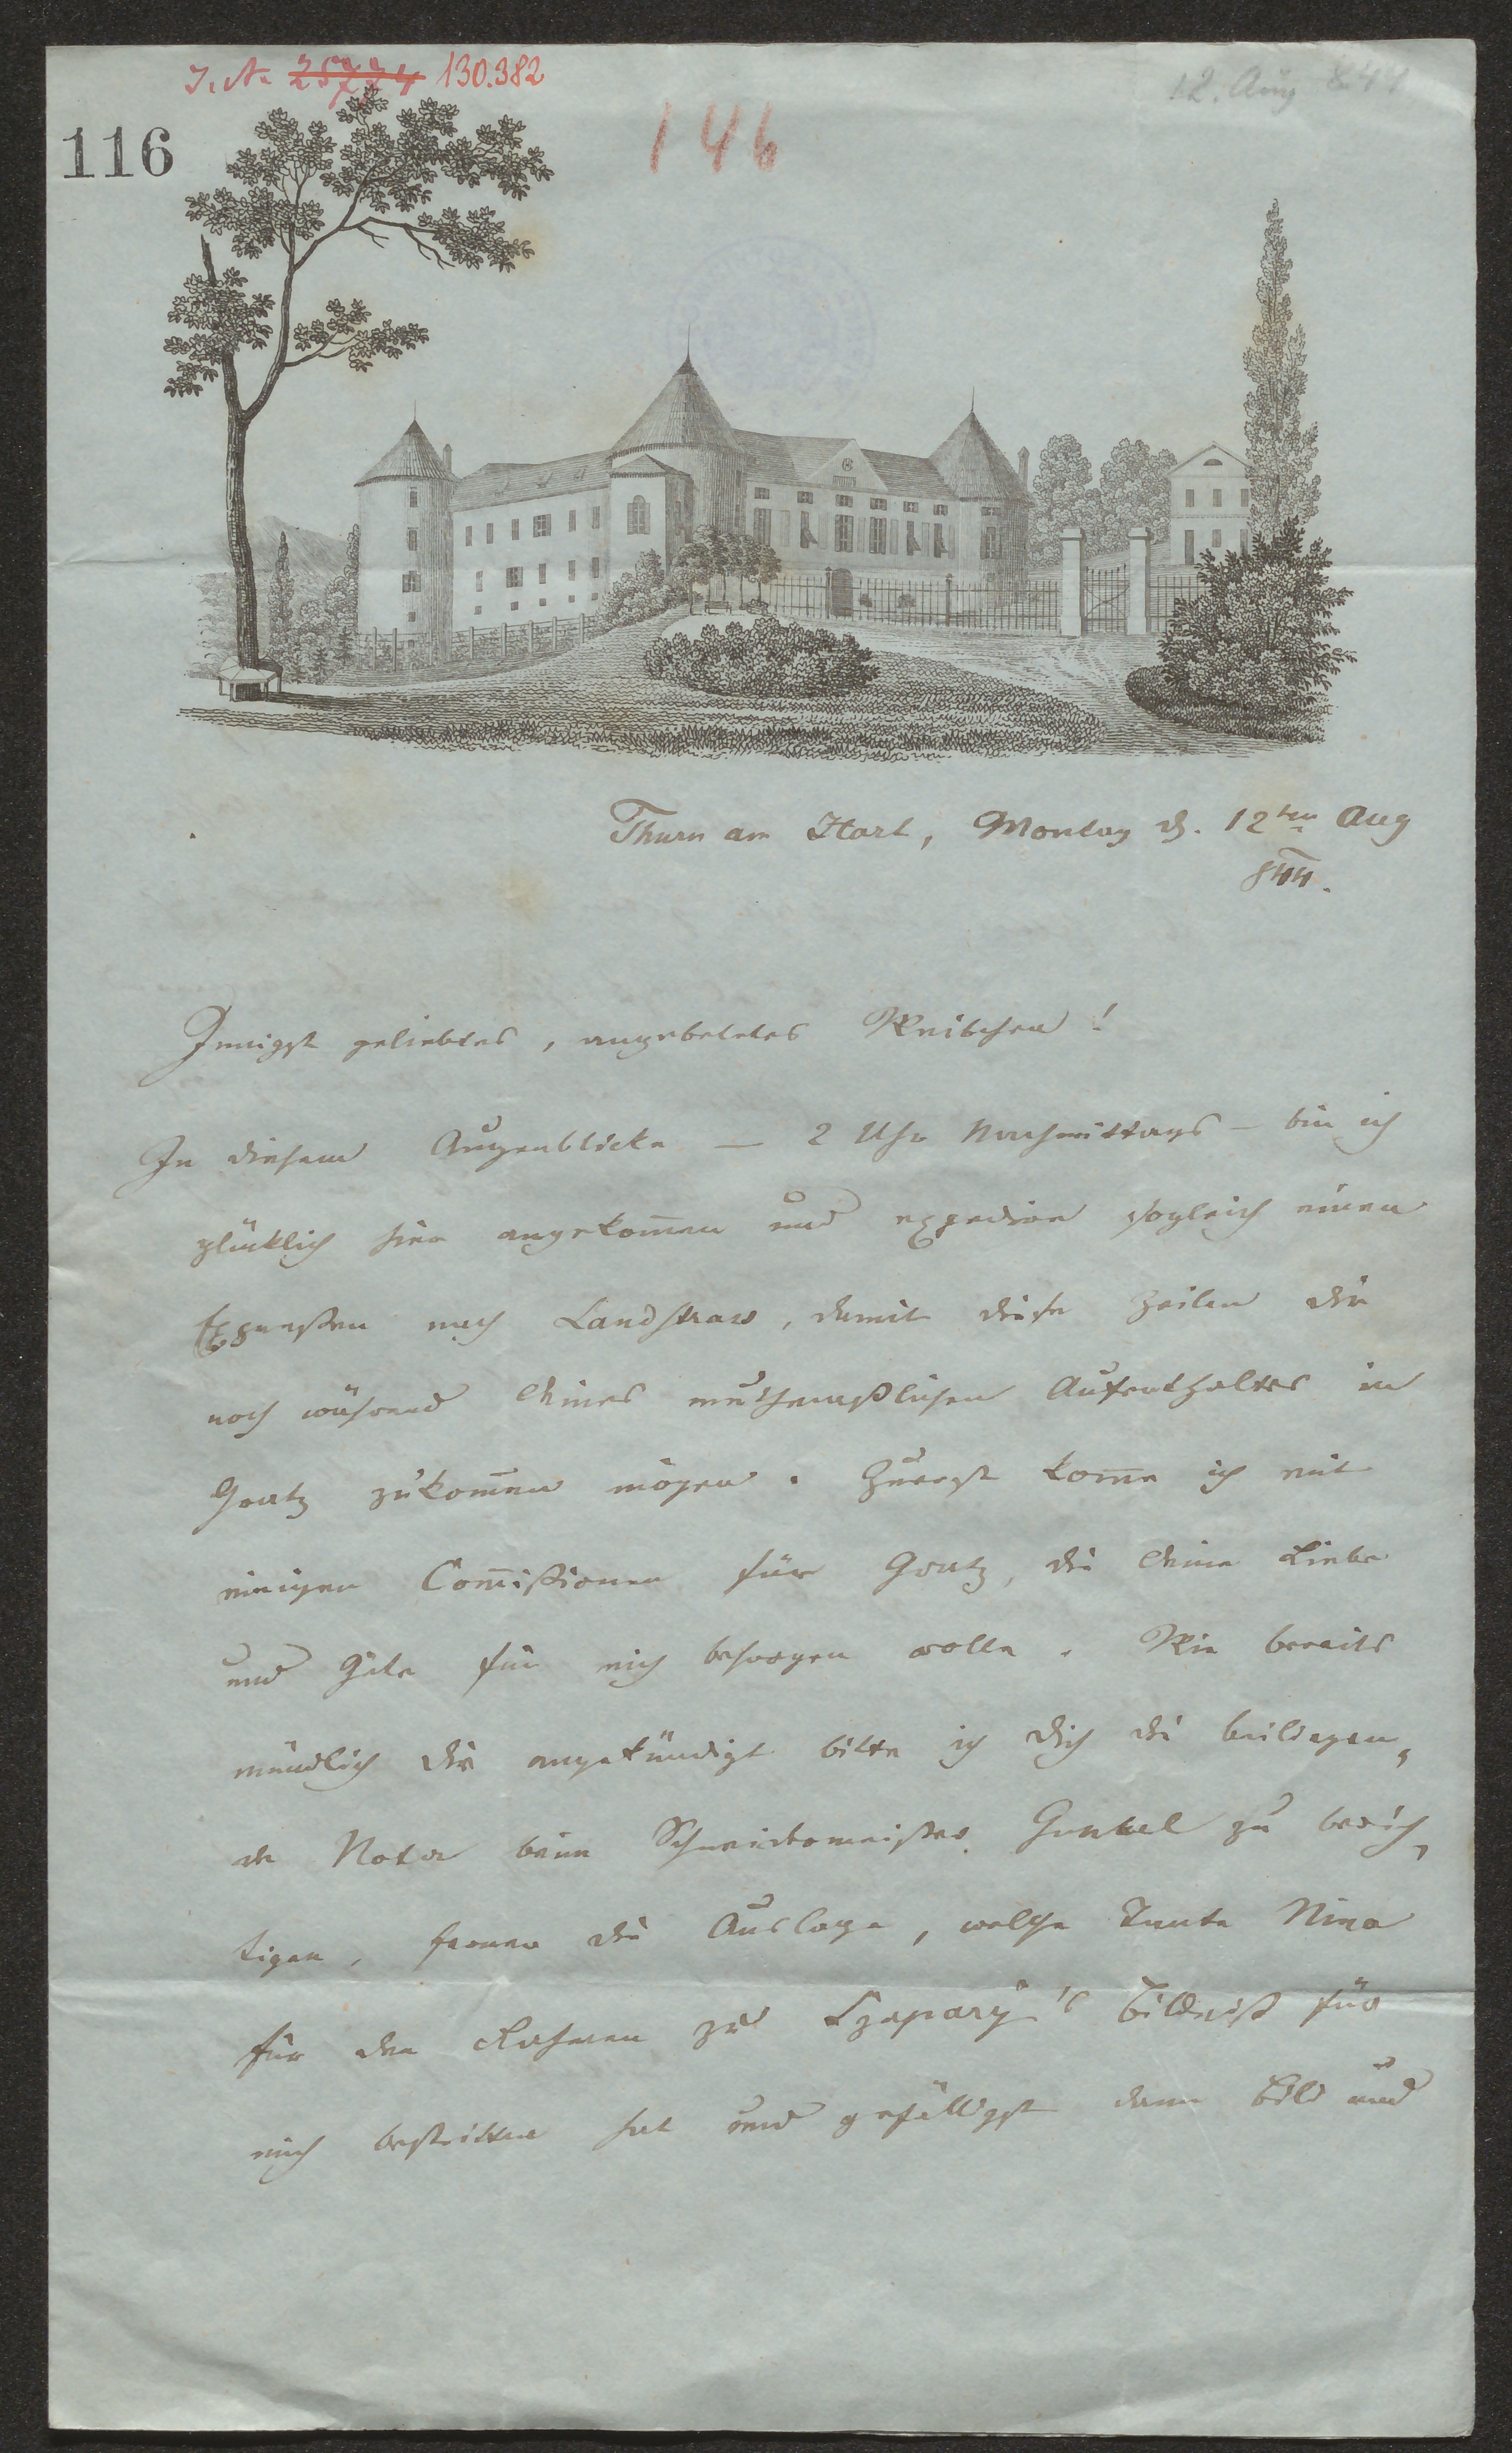 I. N. 25774 130.382
12. Aug 844
116
146
Thurn am Hart, Montag d. 12ten Aug
844.
Innigst geliebtes, angebetetes Weibchen!
In diesem Augenblicke – 2 Uhr Nachmittags – bin ich
glücklich hier angekom̅en und expedire sogleich einen
Expreßen nach Landstrass, damit diese Zeilen dir
noch während Deines muthmaßlichen Aufenthaltes in
Gratz zukom̅en mögen. Zuerst kom̅e ich mit
einigen Com̅ißionen für Gratz, die Deine Liebe
und Güte für mich besorgen wolle. Wie bereits
mündlich dir angekündigt bitte ich Dich die beiliegen„
de Nota beim Schneidermeister Gunkel zu berich„
tigen, ferner die Auslage, welche Tante Nina
für den Rahmen zu Szapary's Bildniß für
mich bestritten hat und gefälligst dann Bild und